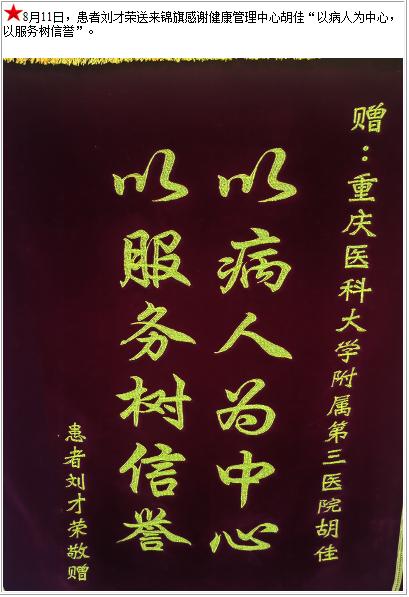 8月11日，患者刘才荣送来锦旗感谢健康管理中心胡佳“以病人为中心，
以服务树信誉”。
赠：重庆医科大学附属第三医院胡佳
以病人为中心
以服务树信誉
患者刘才荣敬赠